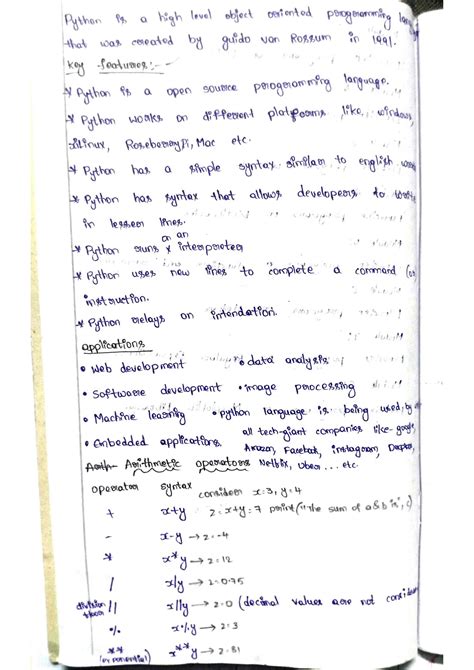 Python is a high level object oriented programming lang
that was created by guido van Rossum in 1991.
Key features:-
* Python is a open source programming language.
* Python works on different platforms, like windows,
Linux, Raseberrypi, Mac etc.
* Python has a simple syntax similar to english
* Python has syntax that allows developers to
in lesser lines.
* Python runs on an interpreter
* Python uses new lines to complete a command (or
instruction.
* Python relays on intendation.
applications
• Web development • data analysis
• Software development • image processing
• Machine learning • python language is being used by
• Embedded applications. all tech-giant companies like google,
Amazon, Facebook, instagram, Netflix, Uber... etc.
Arithmetic operators
operator syntax consider x=3, y=4
+ x+y z=x+y=7 print("the sum of a&b is", c)
- x-y → z=-4
* x*y → z=12
/ x/y → z=0.75
division floor // x//y → z=0 (decimal values are not consider
% x%y → z=3
** (exponential) x**y → z=81